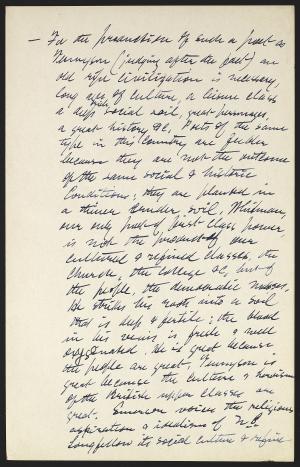 — For the production of such a poet as
Tennyson (judging after the fact) an
old ripe civilization is necessary,
long ages of culture, a leisure class
a deep rich social soil, great personages,
a great history &c. Poets of the same
type in this country are feebler
because they are not the outcome
of the same social & historic
conditions; they are planted in
a thinner soil. Whitman,
our only poet of first class power,
is not the product of our
cultured & refined classes, the
church, the college &c, but of
the people, the democratic masses.
He strikes his roots into a soil
that is deep & fertile; the blood
in his veins is fresh & well
oxygenated. He is great because
the people are great. Tennyson is
great because the culture & heroism
of the British upper classes are
great. Emerson voices the religious
aspiration & idealism of N.E.
Longfellow its social culture & refine